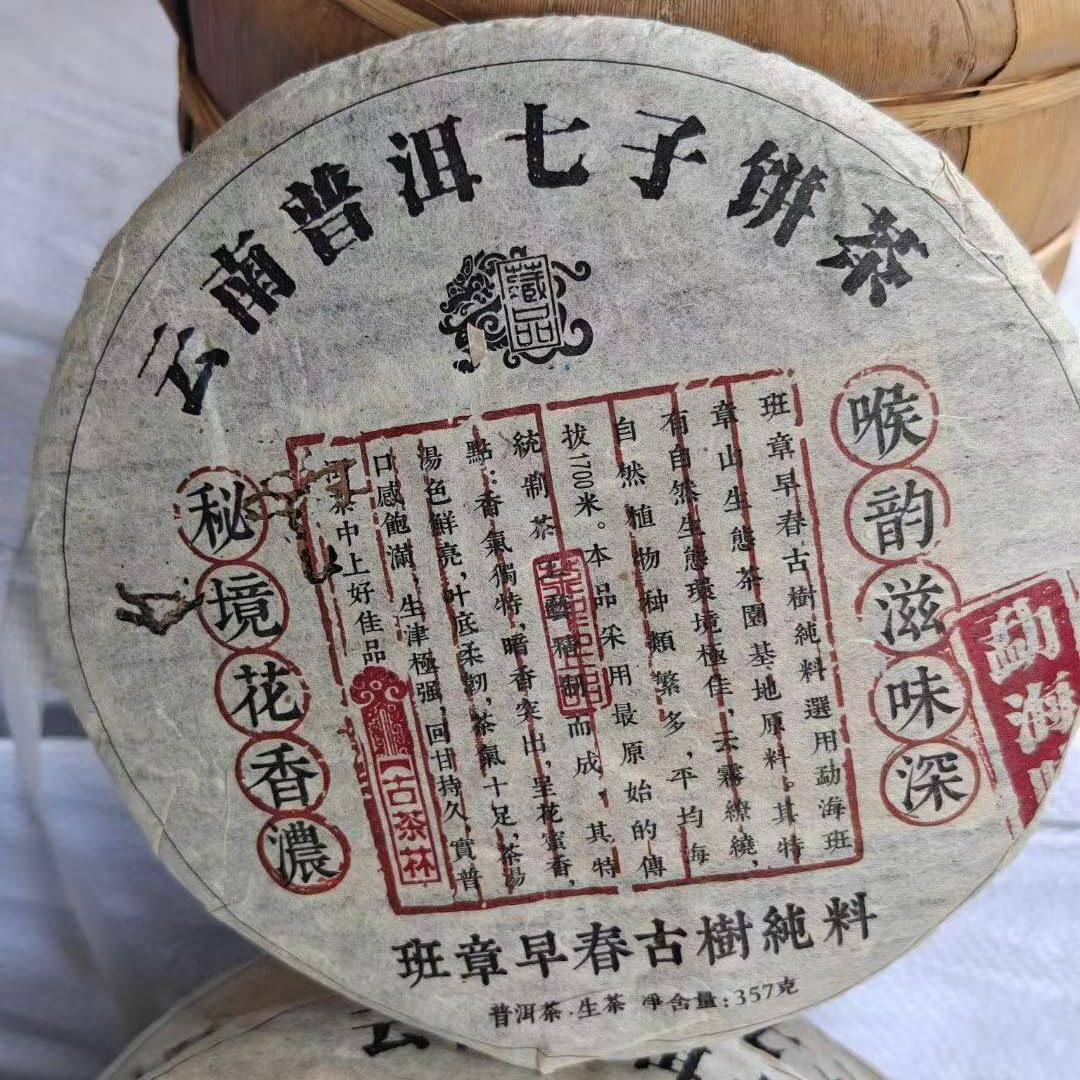 云南普洱七子饼茶
藏品
喉韵滋味深
班章早春古樹純料選用勐海班
章山生態茶園基地原料。其特
有自然生態環境極佳,云霧繚繞,
自然植物种類繁多,平均海
拔1700米。本品采用最原始的傳
統制茶工藝精制而成,其特
點:香氣獨特,暗香突出,呈花蜜香,
湯色鮮亮,叶底柔韌,茶氣十足,茶湯
口感飽滿 生津極强,回甘持久,實普
茶中上好佳品
古茶林
秘境花香濃
勐海
班章早春古樹純料
普洱茶.生茶 净含量:357克